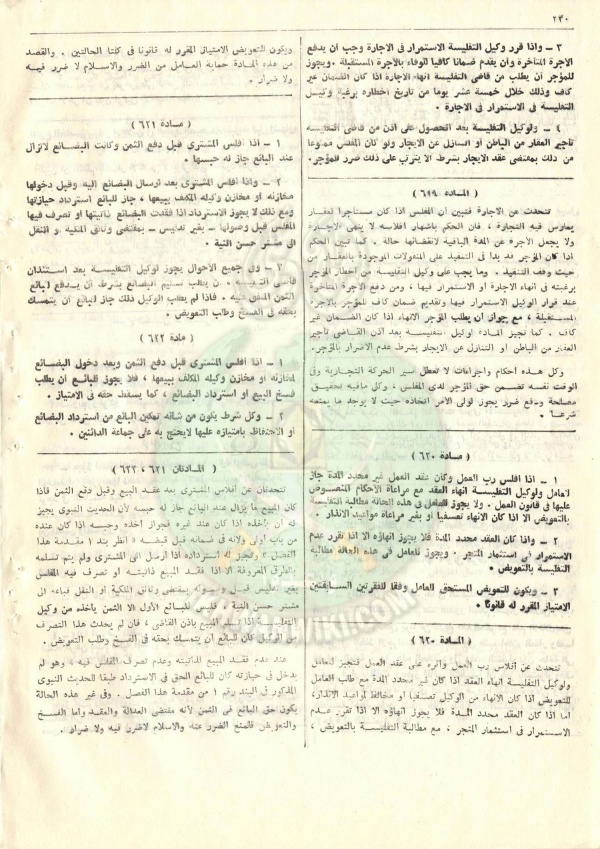 ٢٤٠
٣ – واذا قرر وكيل التفليسة الاستمرار فى الاجارة وجب ان يدفع
الاجرة المتأخرة وان يقدم ضمانا كافيا للوفاء بالاجرة المستقبلة . ويجوز
للمؤجر أن يطلب من قاضى التفليسة انهاء الاجارة اذا كان الضمان غير
كاف وذلك خلال خمسة عشر يوما من تاريخ اخطاره برغبة وكيل
التفليسة فى الاستمرار فى الاجارة .
٤ – ولوكيل التفليسة بعد الحصول على اذن من قاضى التفليسة
تأجير العقار من الباطن أو التنازل عن الايجار ولو كان المفلس ممنوعا
من ذلك بمقتضى عقد الايجار بشرط الا يترتب على ذلك ضرر للمؤجر .
( المادة ٦١٩ )
تتحدث عن الاجارة فتبين أن المفلس اذا كان مستأجرا لعقار
يمارس فيه التجارة ، فان الحكم باشهار افلاسه لا ينهى الاجارة
ولا يجعل الاجرة عن المدة الباقية لانقضائها حالة . كما تبين الحكم
اذا كان المؤجر قد بدأ فى التنفيذ على المنقولات الموجودة بالعقار من
حيث وقف التنفيذ . وما يجب على وكيل التفليسة من اخطار المؤجر
برغبته فى انهاء الاجارة أو الاستمرار فيها ، ومن دفع الاجرة المتأخرة
عند قرار الوكيل الاستمرار فيها وتقديم ضمان كاف للمؤجر بالاجرة
المستقبلة ، مع جواز أن يطلب المؤجر الانهاء اذا كان الضمان غير
كاف . كما تجيز المادة لوكيل التفليسة بعد اذن القاضى تأجير
العقار من الباطن أو التنازل عن الايجار بشرط عدم الاضرار بالمؤجر .
وكل هذه أحكام واجراءات لا تعطل سير الحركة التجارية وفى
الوقت نفسه تضمن حق المؤجر لدى المفلس ، وكل مافيه تحقيق
مصلحة ودفع ضرر يجوز لولى الأمر اتخاذه حيث لا يوجد ما يمنعه
شرعا .
( مادة ٦٢٠ )
١ – اذا افلس رب العمل وكان عقد العمل غير محدد المدة جاز
للعامل ولوكيل التفليسة انهاء العقد مع مراعاة الأحكام المنصوص
عليها فى قانون العمل . ولا يجوز للعامل فى هذه الحالة مطالبة التفليسة
بالتعويض الا اذا كان الانهاء تعسفيا أو بغير مراعاة مواعيد الانذار .
٢ – واذا كان العقد محدد المدة فلا يجوز انهاؤه الا اذا تقرر عدم
الاستمرار فى استثمار المتجر . ويجوز للعامل فى هذه الحالة مطالبة
التفليسة بالتعويض .
٣ – ويكون للتعويض المستحق للعامل وفقا للفقرتين السابقتين
الامتياز المقرر له قانونا .
( المادة ٦٢٠ )
تتحدث عن افلاس رب العمل وأثره على عقد العمل فتجيز للعامل
ولوكيل التفليسة انهاء العقد اذا كان غير محدد المدة مع طلب العامل
للتعويض اذا كان الانهاء من الوكيل تعسفيا أو مخالفا لمواعيد الانذار ،
أما اذا كان العقد محدد المدة فلا يجوز انهاؤه الا اذا تقرر عدم
الاستمرار فى استثمار المتجر ، مع مطالبة التفليسة بالتعويض ،
ويكون للتعويض الامتياز المقرر له قانونا فى كلتا الحالتين . والقصد
من هذه المادة حماية العامل من الضرر والاسلام لا ضرر فيه
ولا ضرار .
( مادة ٦٢١ )
١ – اذا أفلس المشترى قبل دفع الثمن وكانت البضائع لاتزال
عند البائع جاز له حبسها .
٢ – واذا أفلس المشترى بعد ارسال البضائع اليه وقبل دخولها
مخازنه أو مخازن وكيله المكلف ببيعها ، جاز للبائع استرداد حيازتها
ومع ذلك لا يجوز الاسترداد اذا فقدت البضائع ذاتيتها أو تصرف فيها
المفلس قبل وصولها – بغير تدليس – بمقتضى وثائق الملكية أو النقل
الى مشتر حسن النية .
٣ – وفى جميع الأحوال يجوز لوكيل التفليسة بعد استئذان
قاضى التفليسة أن يطلب تسليم البضائع بشرط أن يدفع للبائع
الثمن المتفق عليه . فاذا لم يطلب الوكيل ذلك جاز للبائع أن يتمسك
بحقه فى الفسخ وطلب التعويض .
( مادة ٦٢٢ )
١ – اذا افلس المشترى قبل دفع الثمن وبعد دخول البضائع
مخازنه أو مخازن وكيله المكلف ببيعها ، فلا يجوز للبائع ان يطلب
فسخ البيع أو استرداد البضائع ، كما يسقط حقه فى الامتياز .
٢ – وكل شرط يكون من شأنه تمكين البائع من استرداد البضائع
أو الاحتفاظ بامتيازه عليها لايحتج به على جماعة الدائنين .
( المادتان ٦٢١ ، ٦٢٢ )
تتحدثان عن افلاس المشترى بعد عقد البيع وقبل دفع الثمن فاذا
كان المبيع ما يزال عند البائع جاز له حبسه لأن الحديث النبوى يجيز
له أن يأخذه اذا كان عند غيره فجواز أخذه وحبسه اذا كان عنده
من باب أولى ولأنه فى ضمانه قبل قبضه « انظر بند ١ مقدمة هذا
الفصل » وتجيز له استرداده اذا أرسل الى المشترى ولم يتم تسلمه
بالطرق المعروفة الا اذا فقد المبيع ذاتيته أو تصرف فيه المفلس
بغير تدليس قبل وصوله بمقتضى وثائق الملكية أو النقل فباعه الى
مشتر حسن النية ، فليس للبائع الأول الا الثمن يأخذه من وكيل
التفليسة اذا تسلم المبيع باذن القاضى ، فان لم يحدث هذا التصرف
من الوكيل كان للبائع أن يتمسك بحقه فى الفسخ وطلب التعويض .
عند عدم فقد المبيع لذاتيته وعدم تصرف المفلس فيه ، وهو لم
يدخل فى حيازته كان للبائع الحق فى الاسترداد طبقا للحديث النبوى
المذكور فى البند رقم ١ من مقدمة هذا الفصل . وفى غير هذه الحالة
يكون حق البائع فى الثمن لأنه مقتضى العدالة والعقد وأما الفسخ
والتعويض فلمنع الضرر عنه والاسلام لاضرر فيه ولا ضرار .